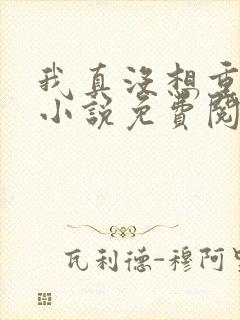 我真没想重
小说免费阅
瓦利德-穆阿